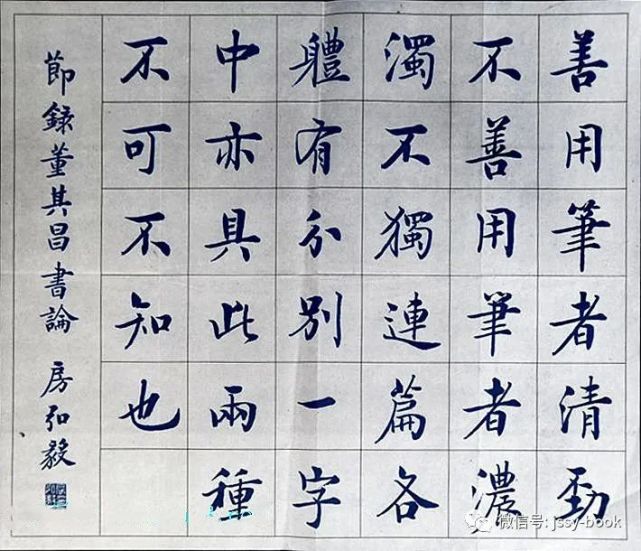 善用筆者清勁
不善用筆者濃
濁不獨連篇各
體有分別一字
中亦具此兩種
不可不知也
節錄董其昌書論 房弘毅
微信号: jssy-book